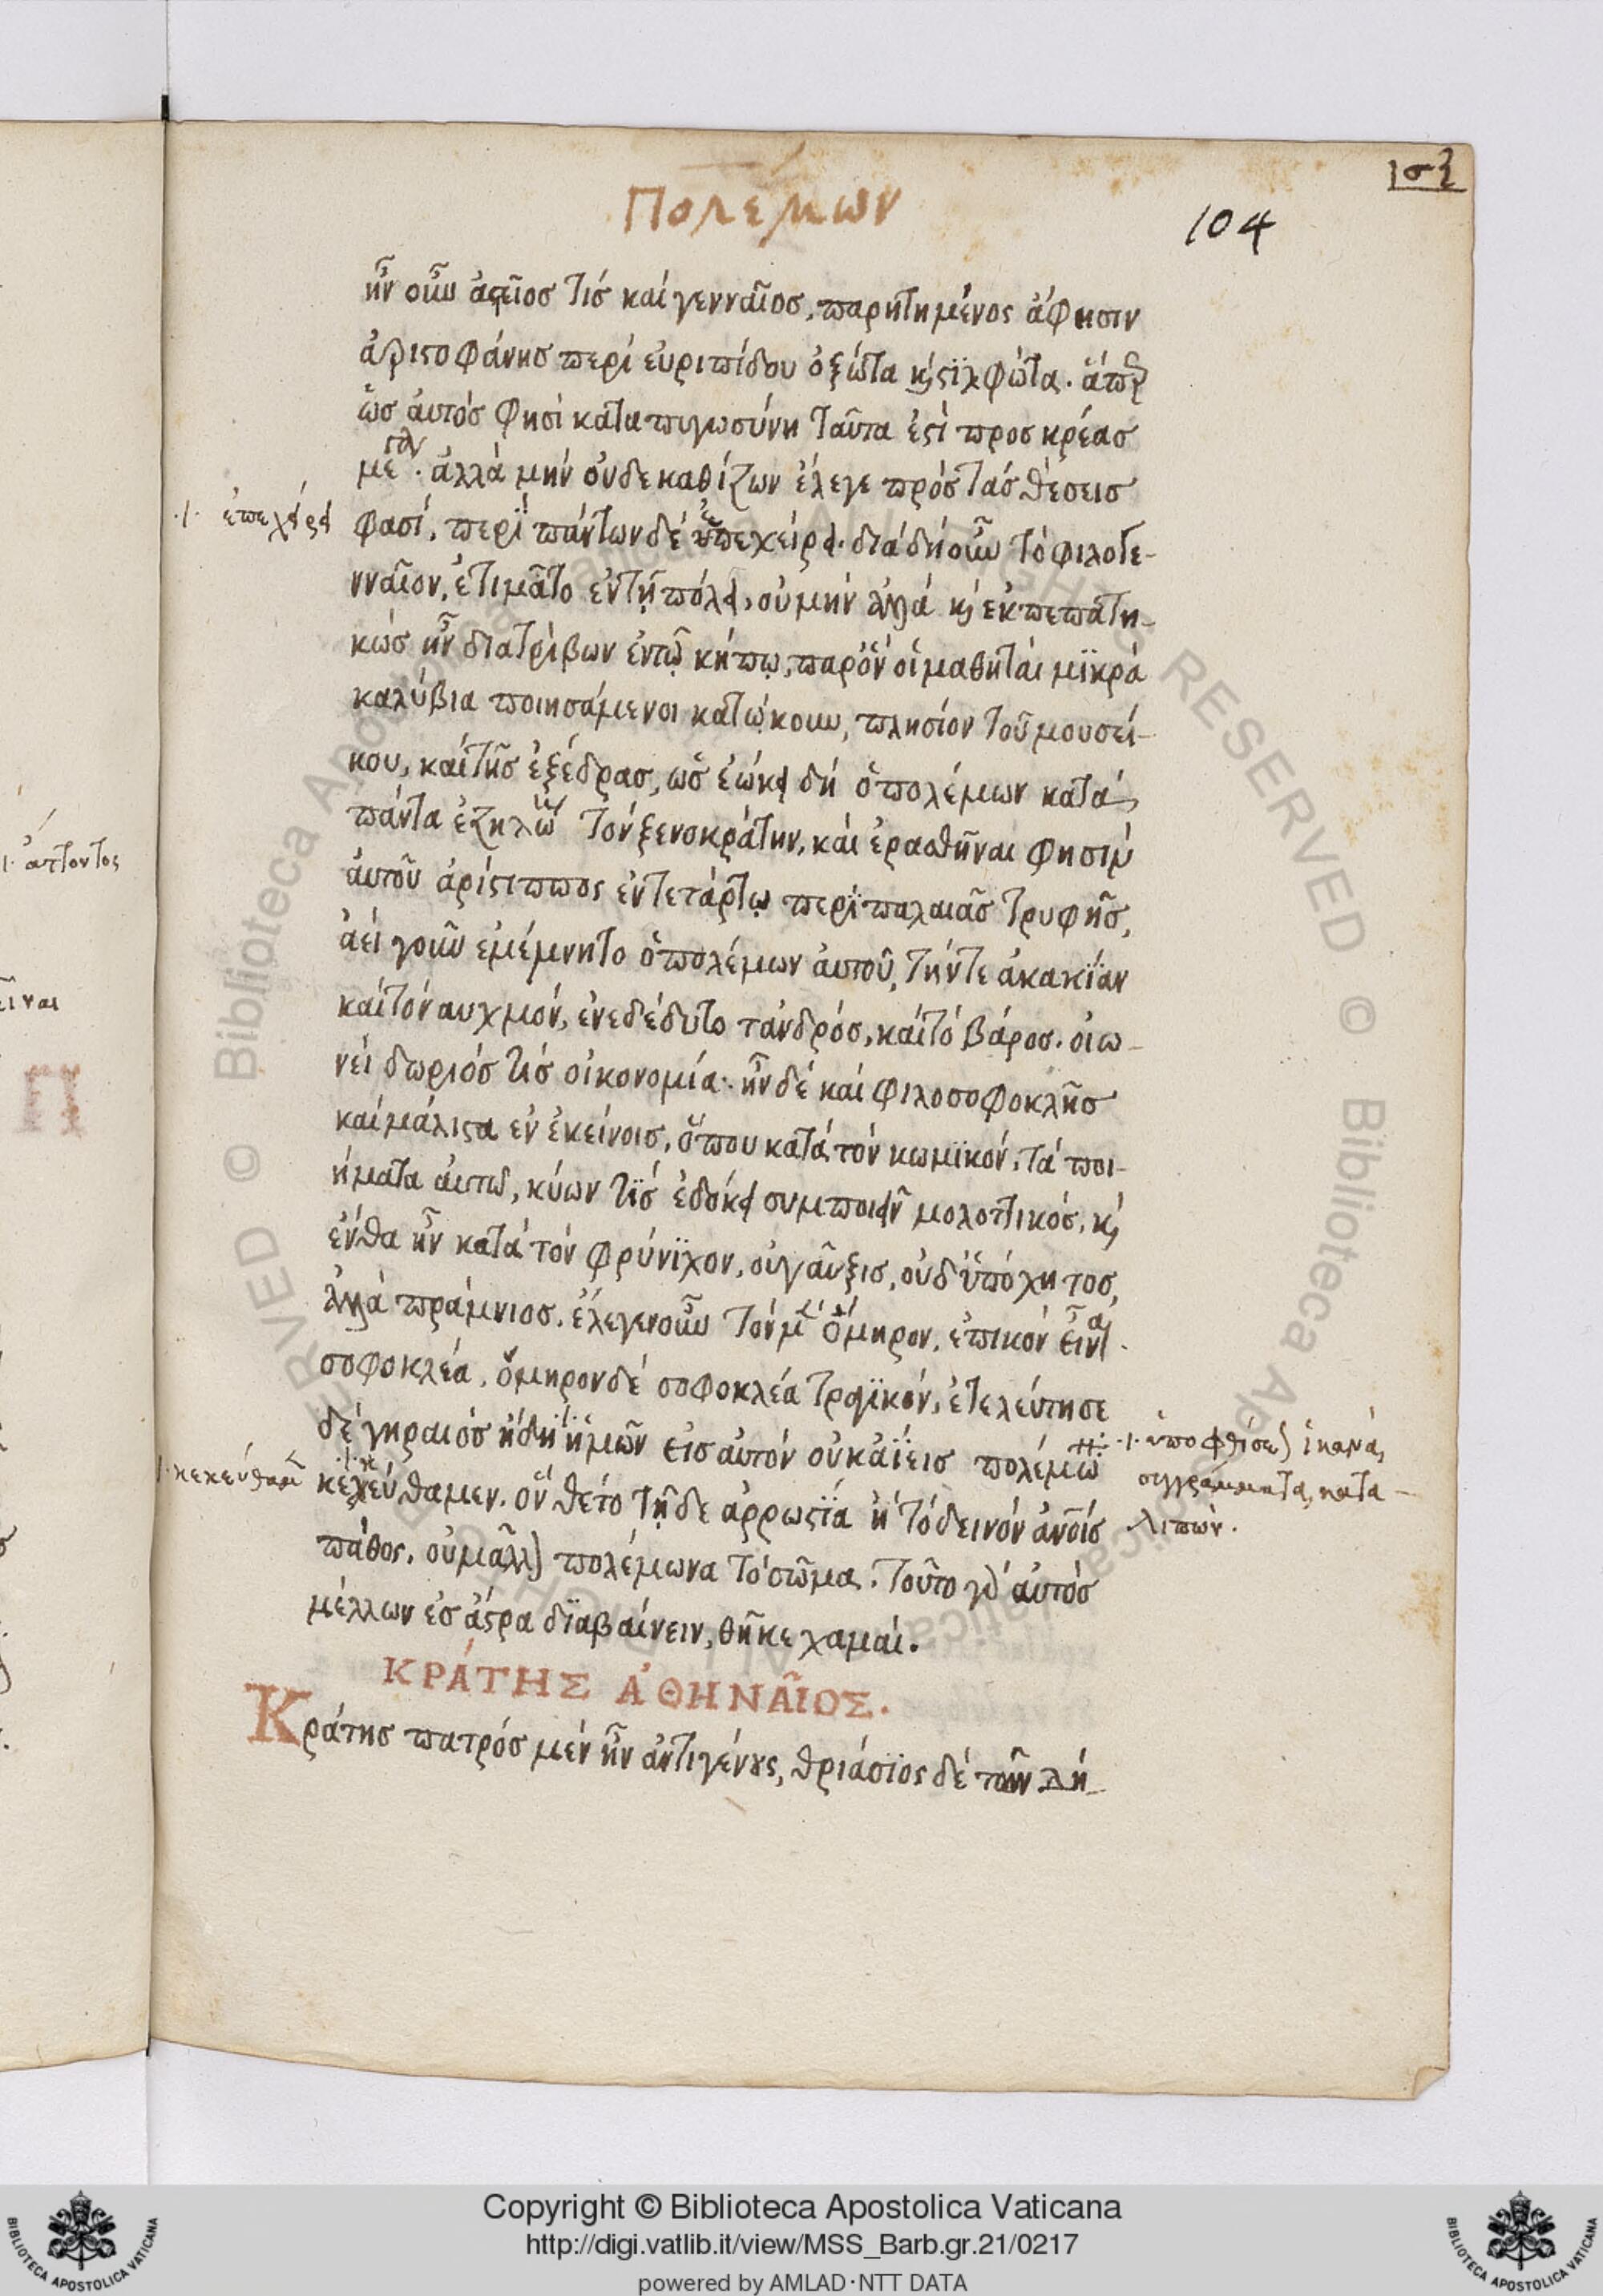 Πολέμων
104
ἦν οὖν ἀστεῖος τίς καὶ γενναῖος, παρητημένος ἅ φησιν
ἀριστοφάνησ περὶ ευριπίδου ὀξώτα κ στιλφώτα. ἅπερ
ὥσ ἀυτόσ φησὶ καταπυγωσύνη ταῦτα ἐστὶ προσ κρέασ
με. ἀλλὰ μὴν ὀυδε καθίζων ἔλεγε πρὸσ τὰσ θέσεισ
φασί, περὶ πάντων δέ ὑπεχείρει. διὰ δὴ οὖν τὸ φιλογε-
νναῖον, ἐτιμᾶτο ἐν τῇ πόλει, οὐ μὴν ἀλλά κ ἐκπεπατη-
κώσ ἦν διατρίβων ἐν τῷ κήπῳ, παρ' ὃν οἱ μαθηταὶ μϊκρὰ
καλύβια ποιησάμενοι κατῴκουν, πλησίον τοῦ μουσεί-
κου, καὶ τῆσ ἐξέδρασ, ὡσ ἐώκει δὴ ὁ πολέμων κατὰ
πάντα ἐζηλω τὸν ξενοκράτην, καὶ ἐρασθῆναι φησὶν
ἀυτοῦ ἀρίστιππος ἐν τετάρτῳ περὶ παλαιᾶσ τρυφῆσ,
ἀεὶ γοῦν εμέμνητο ὁ πολέμων ἀυτοῦ, τήν τε ἀκακίαν
καὶ τὸν αυχμόν, ἐνεδέδυτο τἀνδρόσ, καὶ τὸ βάρος. οἱω-
νεὶ δωριόσ τισ οἰκονομία. ἦν δέ καὶ φιλοσοφοκλῆσ
καὶ μάλιστα εν ἐκείνοισ, ὅπου κατὰ τὸν κωμϊκόν, τὰ ποι-
ήματα ἀυτῶ, κύων τισ ἐδόκει συμποιεῖν μολοττικόσ, κ
ἔνθα ἦν κατὰ τὸν φρύνϊχον, οὐ γλῦξισ, οὐδ' ὑπόχητοσ,
ἀλλὰ πράμνιοσ. ἔλεγεν οὖν τὸν μ ὅμηρον, ἐπικὸν εἶναι
σοφοκλέα, ὅμηρον δὲ σοφοκλέα τραγϊκόν, ἐτελεύτησε
δέ γηραιόσ ἤδη ἡμῶν εἰσ αυτόν οὐκ ἀΐεισ πολέμω
κεκεύθαμεν. ὃν θέτο τῇδε αρρωστία ἡ τὸ δεινὸν ἀνοίσ
πάθος. οὐ μᾶλλ πολέμωνα τὸ σῶμα. τοῦτο γὰρ αυτόσ
μέλλων ἐσ ἄστρα δϊαβαίνειν, θῆκε χαμαί.
ΚΡΆΤΗΣ ἈΘΗΝΑῖΟΣ.
Κράτησ πατρόσ μέν ἦν ἀντιγένους, θριάσϊος δέ τῶν δή-
ἐπεχείρει
κεκεύθαμ
ὑποφθίσε ἱκανὰ
συγγράμματα, κατα-
λιπών.
ἅπτοντος
εῖναι
Π
Copyright © Biblioteca Apostolica Vaticana
http://digi.vatlib.it/view/MSS_Barb.gr.21/0217
powered by AMLAD·NTT DATA
BIBLIOTECA APOSTOLICA VATICANA
BIBLIOTECA APOSTOLICA VATICANA